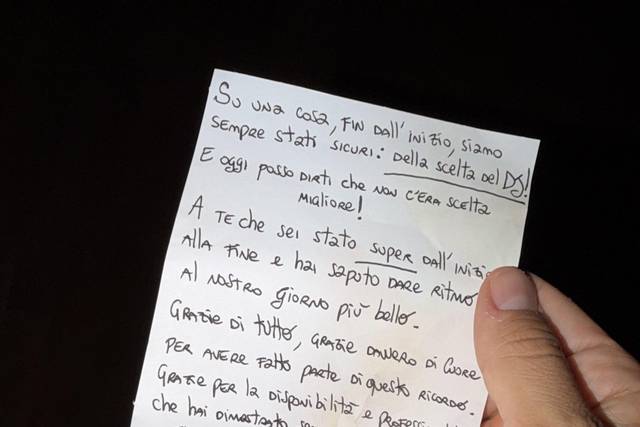 Su una cosa, fin dall'inizio, siamo
sempre stati sicuri: della scelta del DJ!
E oggi posso dirti che non c'era scelta
migliore!
A te che sei stato super dall'inizi
alla fine e hai saputo dare ritmo
al nostro giorno più bello.
Grazie di tutto, grazie davvero di cuore
per avere fatto parte di questo ricordo.
Grazie per la disponibilità e
che hai dimostrato